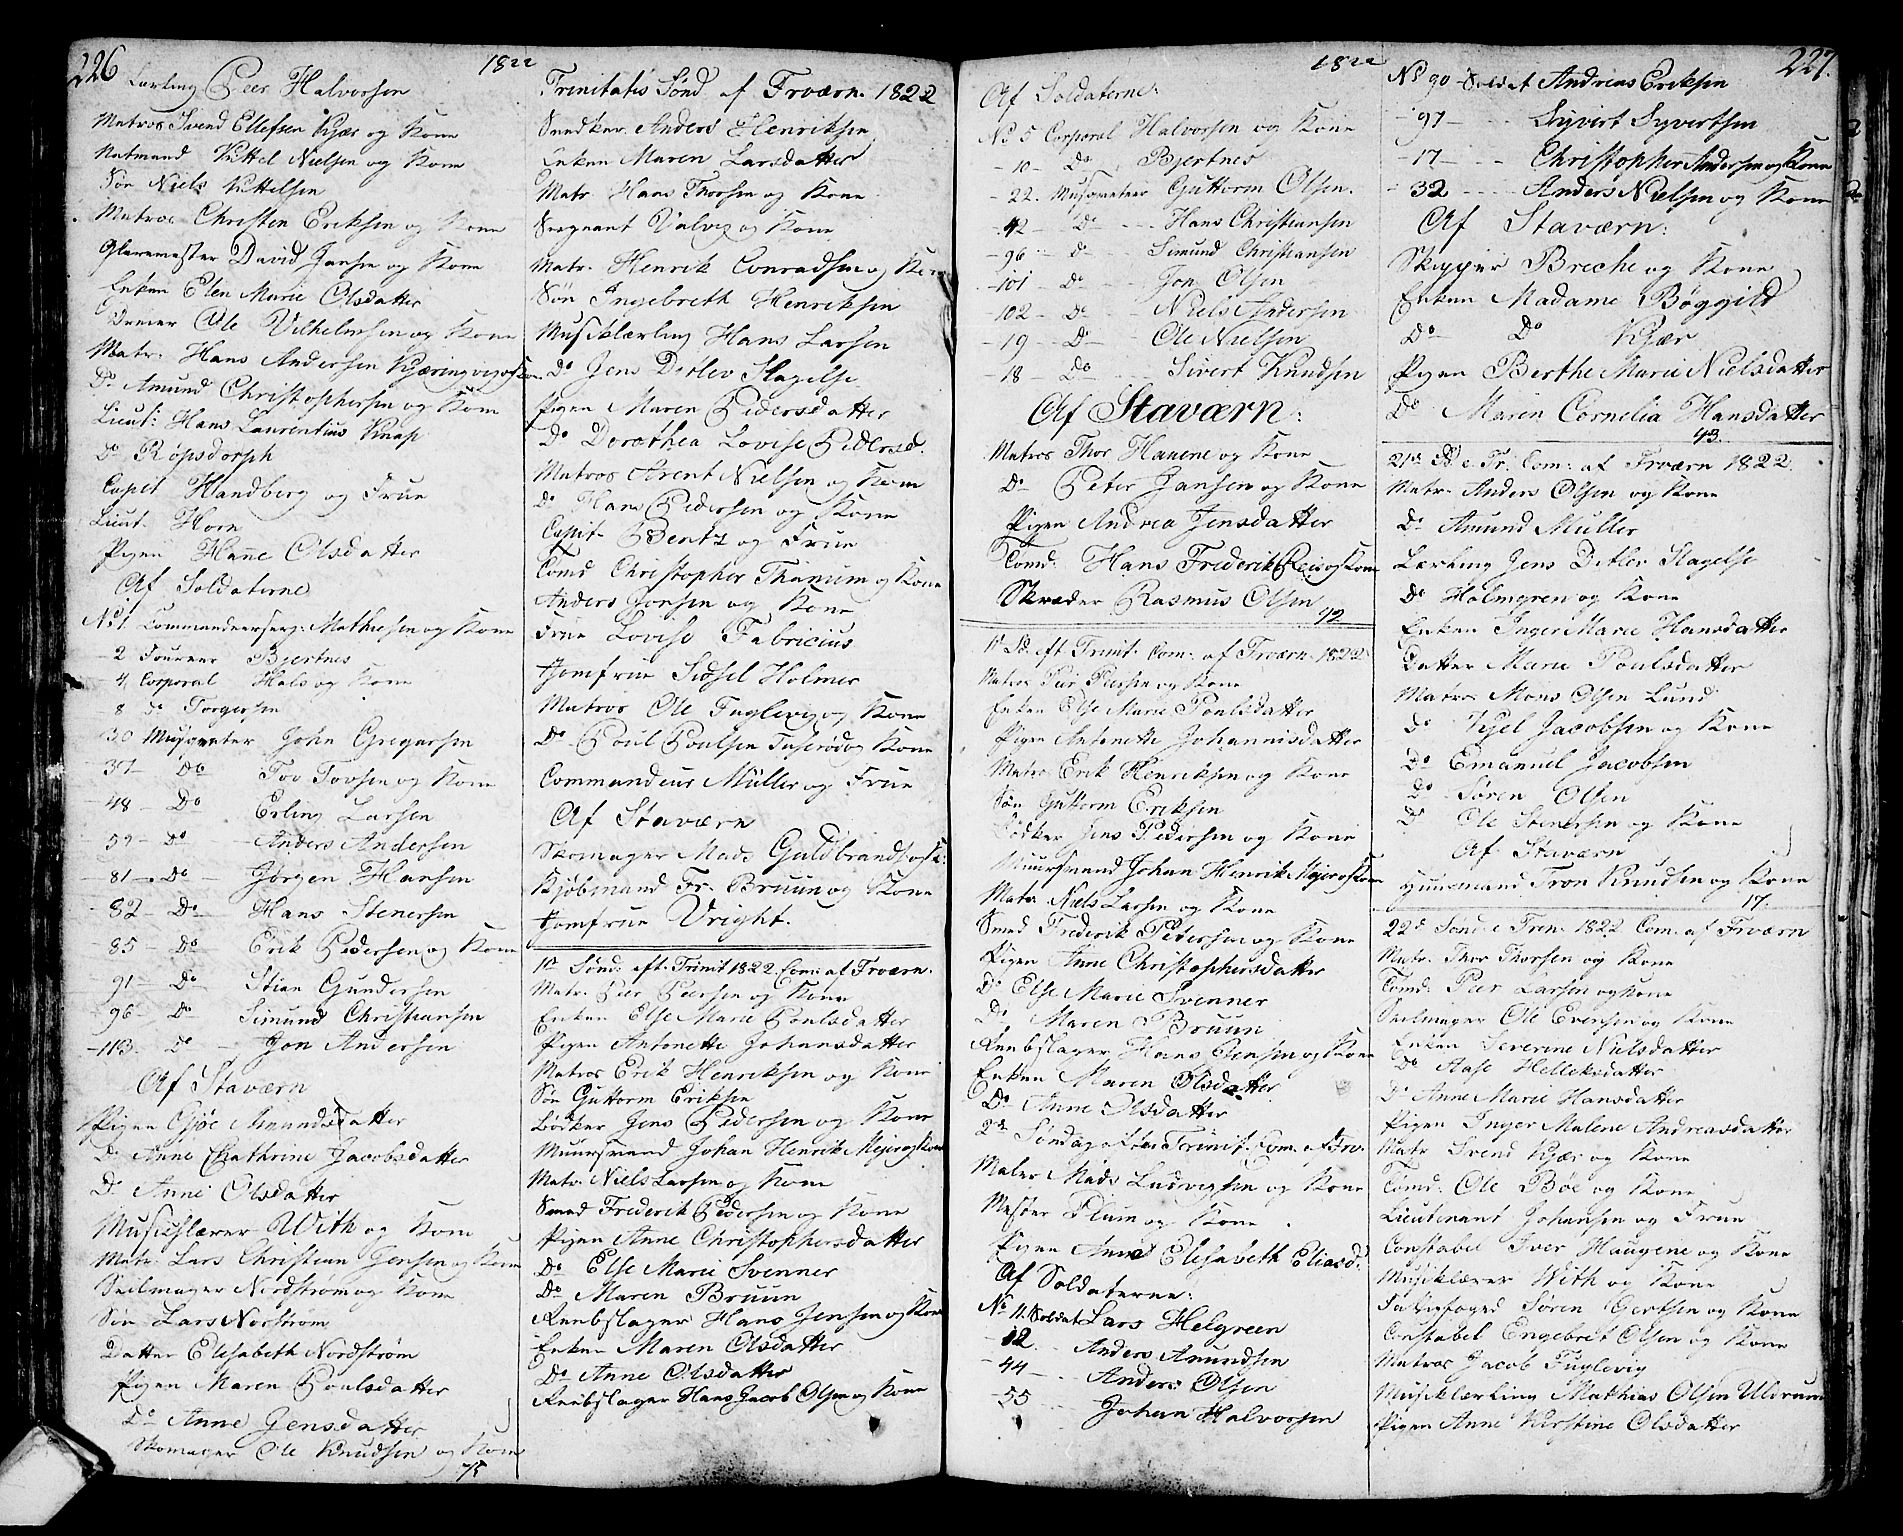 226
1822
Lærling Peer Halvorsen
Matros Svend Ellefsen Kjær og Kone
Natmand Kittel Nielsen og Kone
Søn Niels Kittelsen
Matros Christen Eriksen og Kone
Glarmester David Jansen og Kone
Enken Elen Marie Olsdatter
Ole Vilhelmsen og Kone
Matr. Hans Andersen Kjæringvig og Kone
Do Amund Christophersen og Kone
Lieut: Hans Laurentius Knap
Do Røpsdorph
Capit Handberg og Frue
Lieut. Horn
Pigen Hanne Olsdatter
Af Soldaterne
No 1. Commandeerserg: Mathiesen og Kone
2 Foureer Bjertnes
4 Corporal Hals og Kone
8 do Torgersen
30 Musqueter John Gregersen
37 Do Tov Tovsen og Kone
48 Do Erling Larsen
59 Do Anders Andersen
81 Do Jørgen Hansen
82 Do Hans Stenersen
85 Do Erik Pedersen og Kone
91 Do Stian Gundersen
96 Do Simund Christiansen
113 Do Jon Andersen
Af Staværn
Pigen Gjøe Amundsdatter
Do Anne Chathrine Jacobsdatter
Do Anne Olsdatter
Musiclærer With og Kone
Matr. Lars Christian Jensen og Kone
Seilmager Nordstrøm og Kone
Søn Lars Norstrøm
Datter Elisabeth Nordstrøm
Pigen Maren Poulsdatter
Do Anne Jensdatter
Skomager Ole Knudsen og Kone
75
Trinitatis Sønd. af Frværn. 1822
Snedker Anders Henriksen
Enken Maren Larsdatter
Matr. Hans Thorsen og Kone
Sergeant Valvig og Kone
Matr. Henrik Conradsen og Kone
Søn Ingebreth Henriksen
Musiklærling Hans Larsen
Do Jens Ditlev Slagelse
Pigen Maren Pedersdatter
Do Dorothea Lovise Pedersd.
Matros Arent Nielsen og Kone
Do Hans Pedersen og Kone
Capit. Bentz og Frue
Tomd Christopher Thinum og Kone
Anders Jonsen og Kone
Frue Lovise Fabricius
Jomfrue Sidsel Holmer
Matros Ole Fuglevig og Kone
Do Poul Poulsen og Kone
Commandeur Müller og Frue
Af Staværn
Skomager Mads Guldbrands. og K:
Kjøbmand Fr. Bruun og Kone
Jomfrue Vright.
1te Sønd. eft. Trinit 1822. Com: af Frværn.
Matr. Peer Peersen og Kone
Enken Else Marie Poulsdatter
Pigen Antonette Johansdatter
Matros Erik Henriksen og Kone
Søn Guttorm Eriksen
Bødker Jens Pedersen og Kone
Muursvend Johan Henrik Mejer og Kone
Matr. Niels Larsen og Kone
Smed Frederik Pedersen og Kone
Pigen Anne Christophersdatter
Do Else Marie Svenner
Do Maren Bruun
Reebslager Hans Jensen og Kone
Enken Maren Olsdatter
Do Anne Olsdatter
Reebslager Hans Jacob Olsen og Kone
1822
227.
Af Soldaterne:
No 5 Corporal Halvorsen og Kone
10 Do Bjertnes
22. Musqueteer Guttorm Olsen.
42 Do Hans Christiansen
96 Do Simund Christiansen
101 Do Jon Olsen
102 Do Niels Andersen
19 Do Ole Nielsen
18 Do Sivert Knudsen
Af Staværn:
Matros Thor Hauene og Kone
Do Peter Jansen og Kone
Pigen Andrea Jensdatter
Tomd: Hans Frederik Reis og Kone
Skræder Rasmus Olsen
92
1te Sd. eft Trinit. Com: af Frværn 1822
Matros Peer Peersen og Kone
Enken Else Marie Poulsdatter
Pigen Antoneth Johannisdatter
Matr. Erik Henriksen og Kone
Søn Guttorm Eriksen
Bødker Jens Pedersen og Kone
Muursvend Johan Henrik Mejer og Kone
Matr. Niels Larsen og Kone
Smed Frederik Petersen og Kone
Pigen Anne Christophersdatter
Do Else Marie Svenner
Do Maren Bruun
Reebslager Hans Jensen og Kone
Enken Maren Olsdatter
Do Anne Olsdatter
2de Søndag efter Trinit. Com. af Frv.
Maler Mads Ludvigsen og Kone
Mester Plum og Kone
Pigen Anne Elisabeth Eliasd.
Af Soldaterne:
No 11. Soldat Lars Helgreen
12 Anders Amundsen
44 Anders Olsen
55 Johan Halvorsen
No 90 Soldat Andreas Eriksen
97 Syvert Syvertsen
17 Christopher Andersen og Kone
32 Anders Nielsen og Kone
Af Staværn:
Skipper Breche og Kone
Enken Madame Bøggild
Do Do Kjær
Pigen Berthe Marie Nielsdatter
Do Maren Cornelia Hansdatter
43.
21de Sd. e. Tr: Com: af Frværn 1822.
Matr. Anders Olsen og Kone
Do Amund Müller
Lærling Jens Ditlev Slagelse
Do Holmgren og Kone
Enken Inger Marie Hansdatter
Datter Marie Poulsdatter
Matros Mons Olsen Lund
Do Kjel Jacobsen og Kone
Do Emanuel Jacobsen
Do Søren Olsen
Do Ole Stenersen og Kone
Af Staværn
Huusmand Tron Knudsen og Kone
17.
22de Sønd. e. Tren. 1822 Com. af Frværn
Matr. Thor Thorsen og Kone
Tomd: Peer Larsen og Kone
Seilmager Ole Evensen og Kone
Enken Severine Nielsdatter
Do Aase Helleksdatter
Do Anne Marie Hansdatter
Pigen Inger Malene Andreasdatter
Matr Svend Kjær og Kone
Tomd: Ole Bøe og Kone
Lieutenant Johansen og Frue
Constabel Iver Haugene og Kone
Musiklærer With og Kone
Søren Gertsen og Kone
Constabel Engebret Olsen og Kone
Matros Jacob Fuglevig
Musiklærling Mathias Olsen Uldrum
Pigen Anne Kirstine Olsdatter